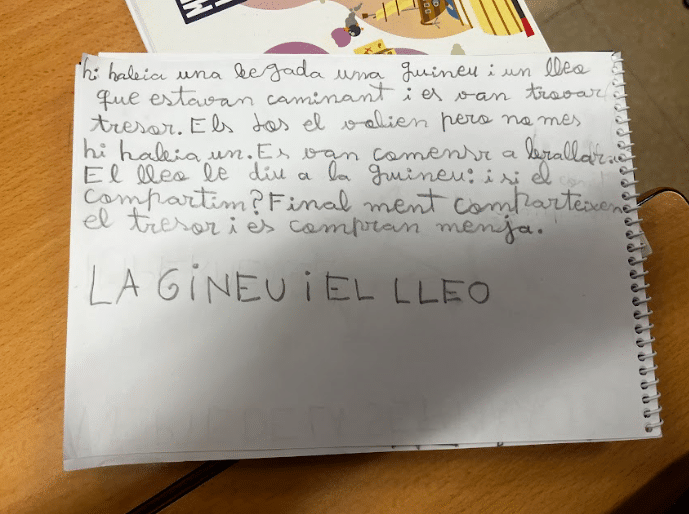 hi habia una begada una guineu i un lleo
que estavan caminant i es van trovar
tresor. Els dos el volien pero nomes
hi habia un. Es van comensr a barallar.
El lleo le diu a la guineu: i si el
compartim? Final ment comparteixen
el tresor i es compran menja.
LA GiNEU i EL LLEO